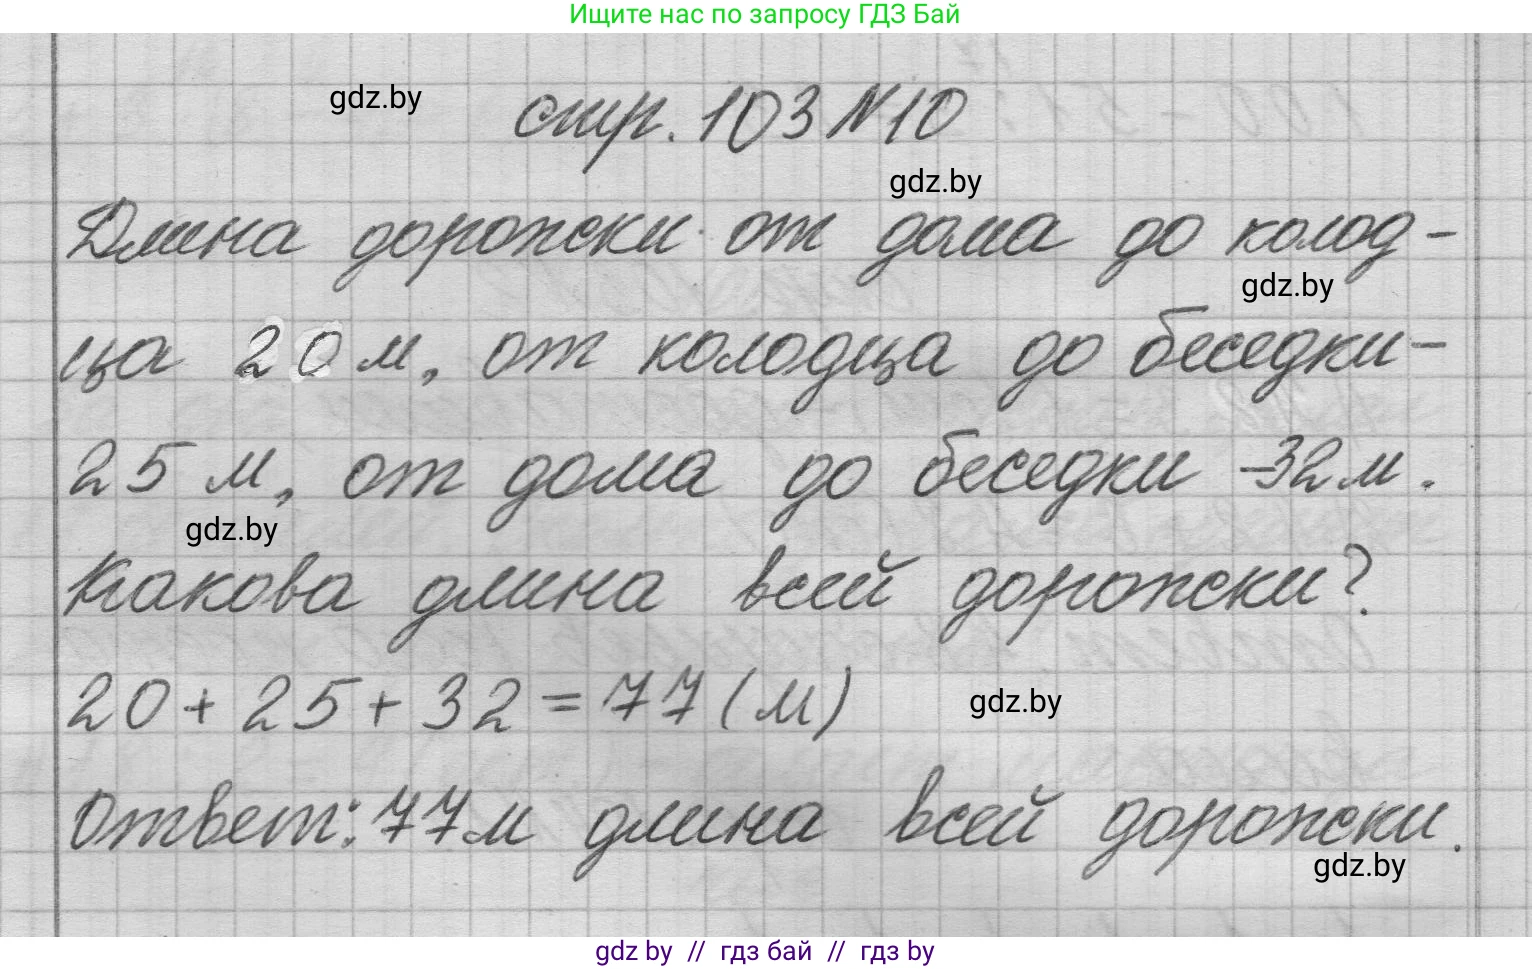 Ищите нас по запросу ГДЗ Бай
gdz.by
стр. 103 №10
gdz.by
Длина дорожки от дома до колод-
gdz.by
ца 20 м, от колодца до беседки-
25 м, от дома до беседки -32 м.
gdz.by
Какова длина всей дорожки?
20 + 25 + 32 = 77 (м)
gdz.by
Ответ: 77 м длина всей дорожки.
gdz.by
gdz by // гдз бай // гдз by